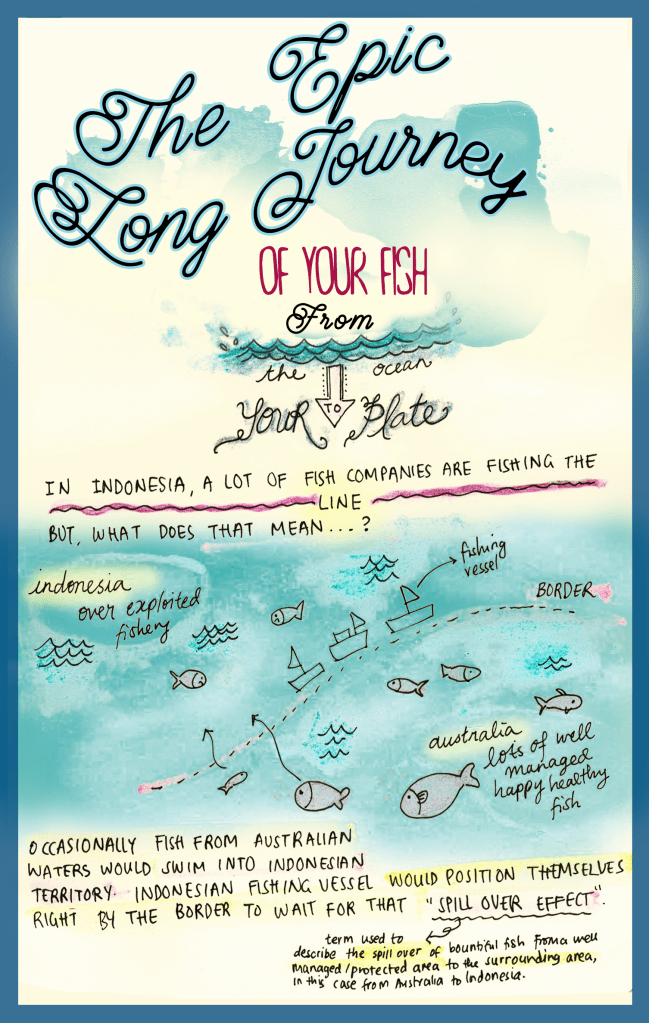 The Epic
Long Journey
OF YOUR FISH
From
the ocean
TO
YOUR Plate
IN INDONESIA, A LOT OF FISH COMPANIES ARE FISHING THE
LINE
BUT, WHAT DOES THAT MEAN....?
fishing
vessel
indonesia
over exploited
fishery
BORDER
australia
lots of well
managed
happy healthy
fish
OCCASIONALLY FISH FROM AUSTRALIAN
WATERS WOULD SWIM INTO INDONESIAN
TERRITORY. INDONESIAN FISHING VESSEL WOULD POSITION THEMSELVES
RIGHT BY THE BORDER TO WAIT FOR THAT "SPILL OVER EFFECT".
term used to
describe the spill over of bountiful fish from a well
managed/protected area to the surrounding area,
in this case from Australia to Indonesia.